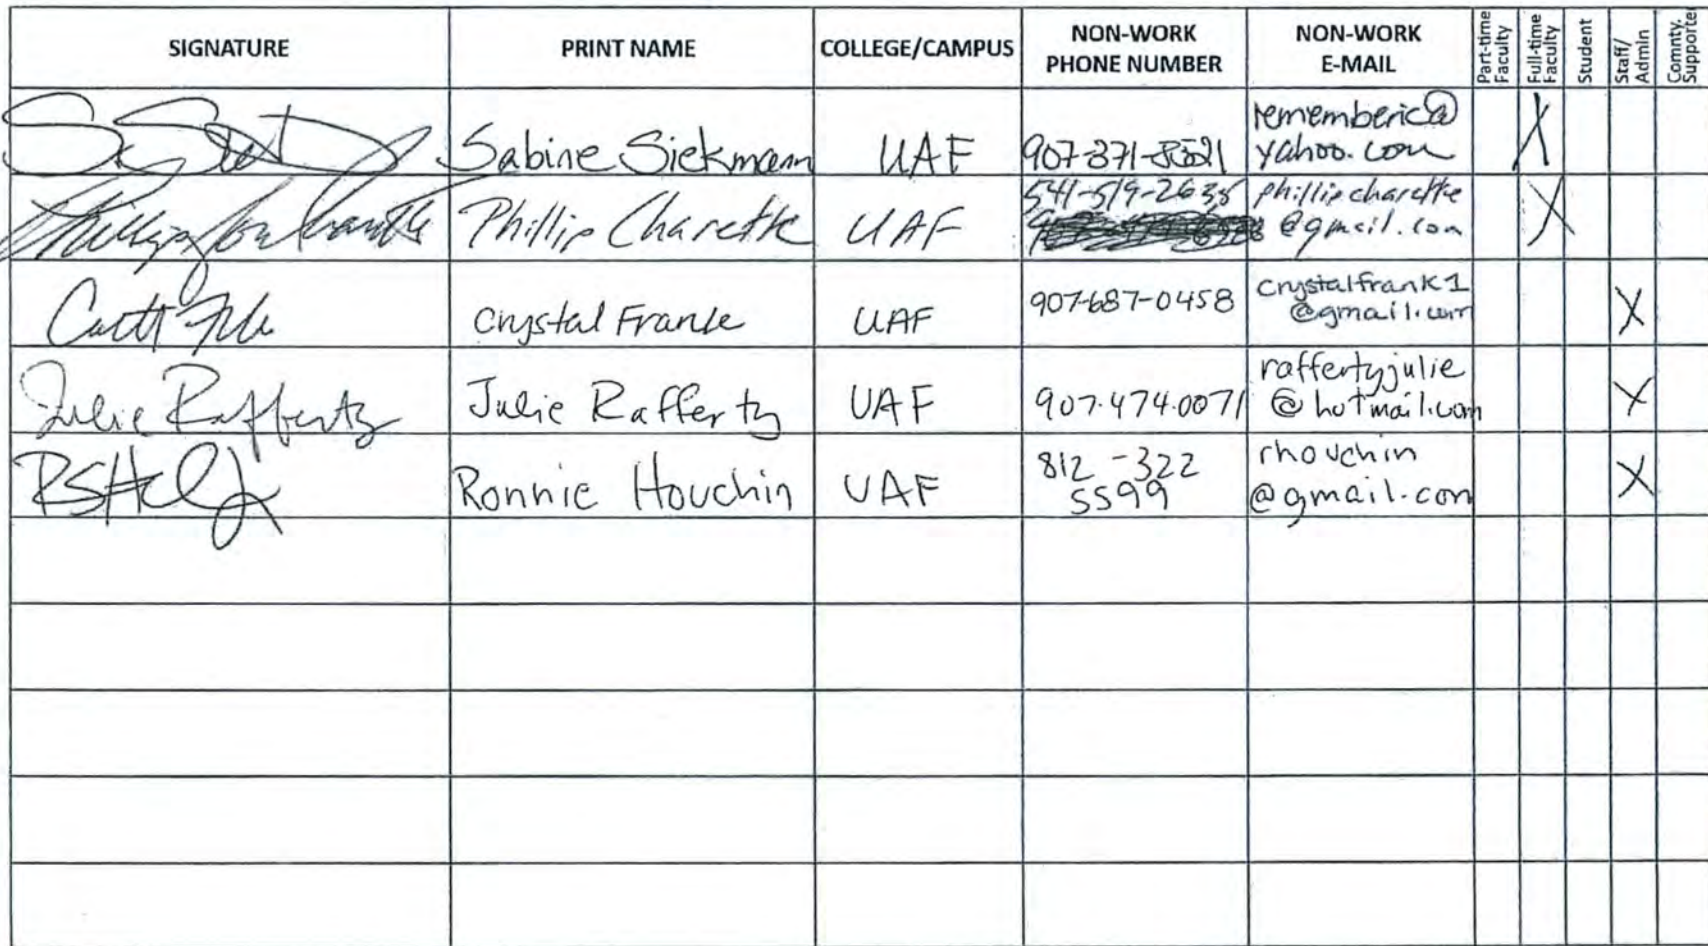 SIGNATURE PRINT NAME COLLEGE/CAMPUS NON-WORK PHONE NUMBER NON-WORK E-MAIL Part-time Faculty Full-time Faculty Student Staff/ Admin Comnty. Supporter
Sabine Siekmann UAF rememberic@
yahoo.com X
Phillip Charette UAF 541-519-2638 phillipcharette
@gmail.com X
Crystal Frank UAF 907-687-0458 crystalfrank1
@gmail.com X
Julie Rafferty Julie Rafferty UAF 907.474.0071 raffertyjulie
@hotmail.com X
Ronnie Houchin UAF 812-322
5599 rhouchin
@gmail.com X